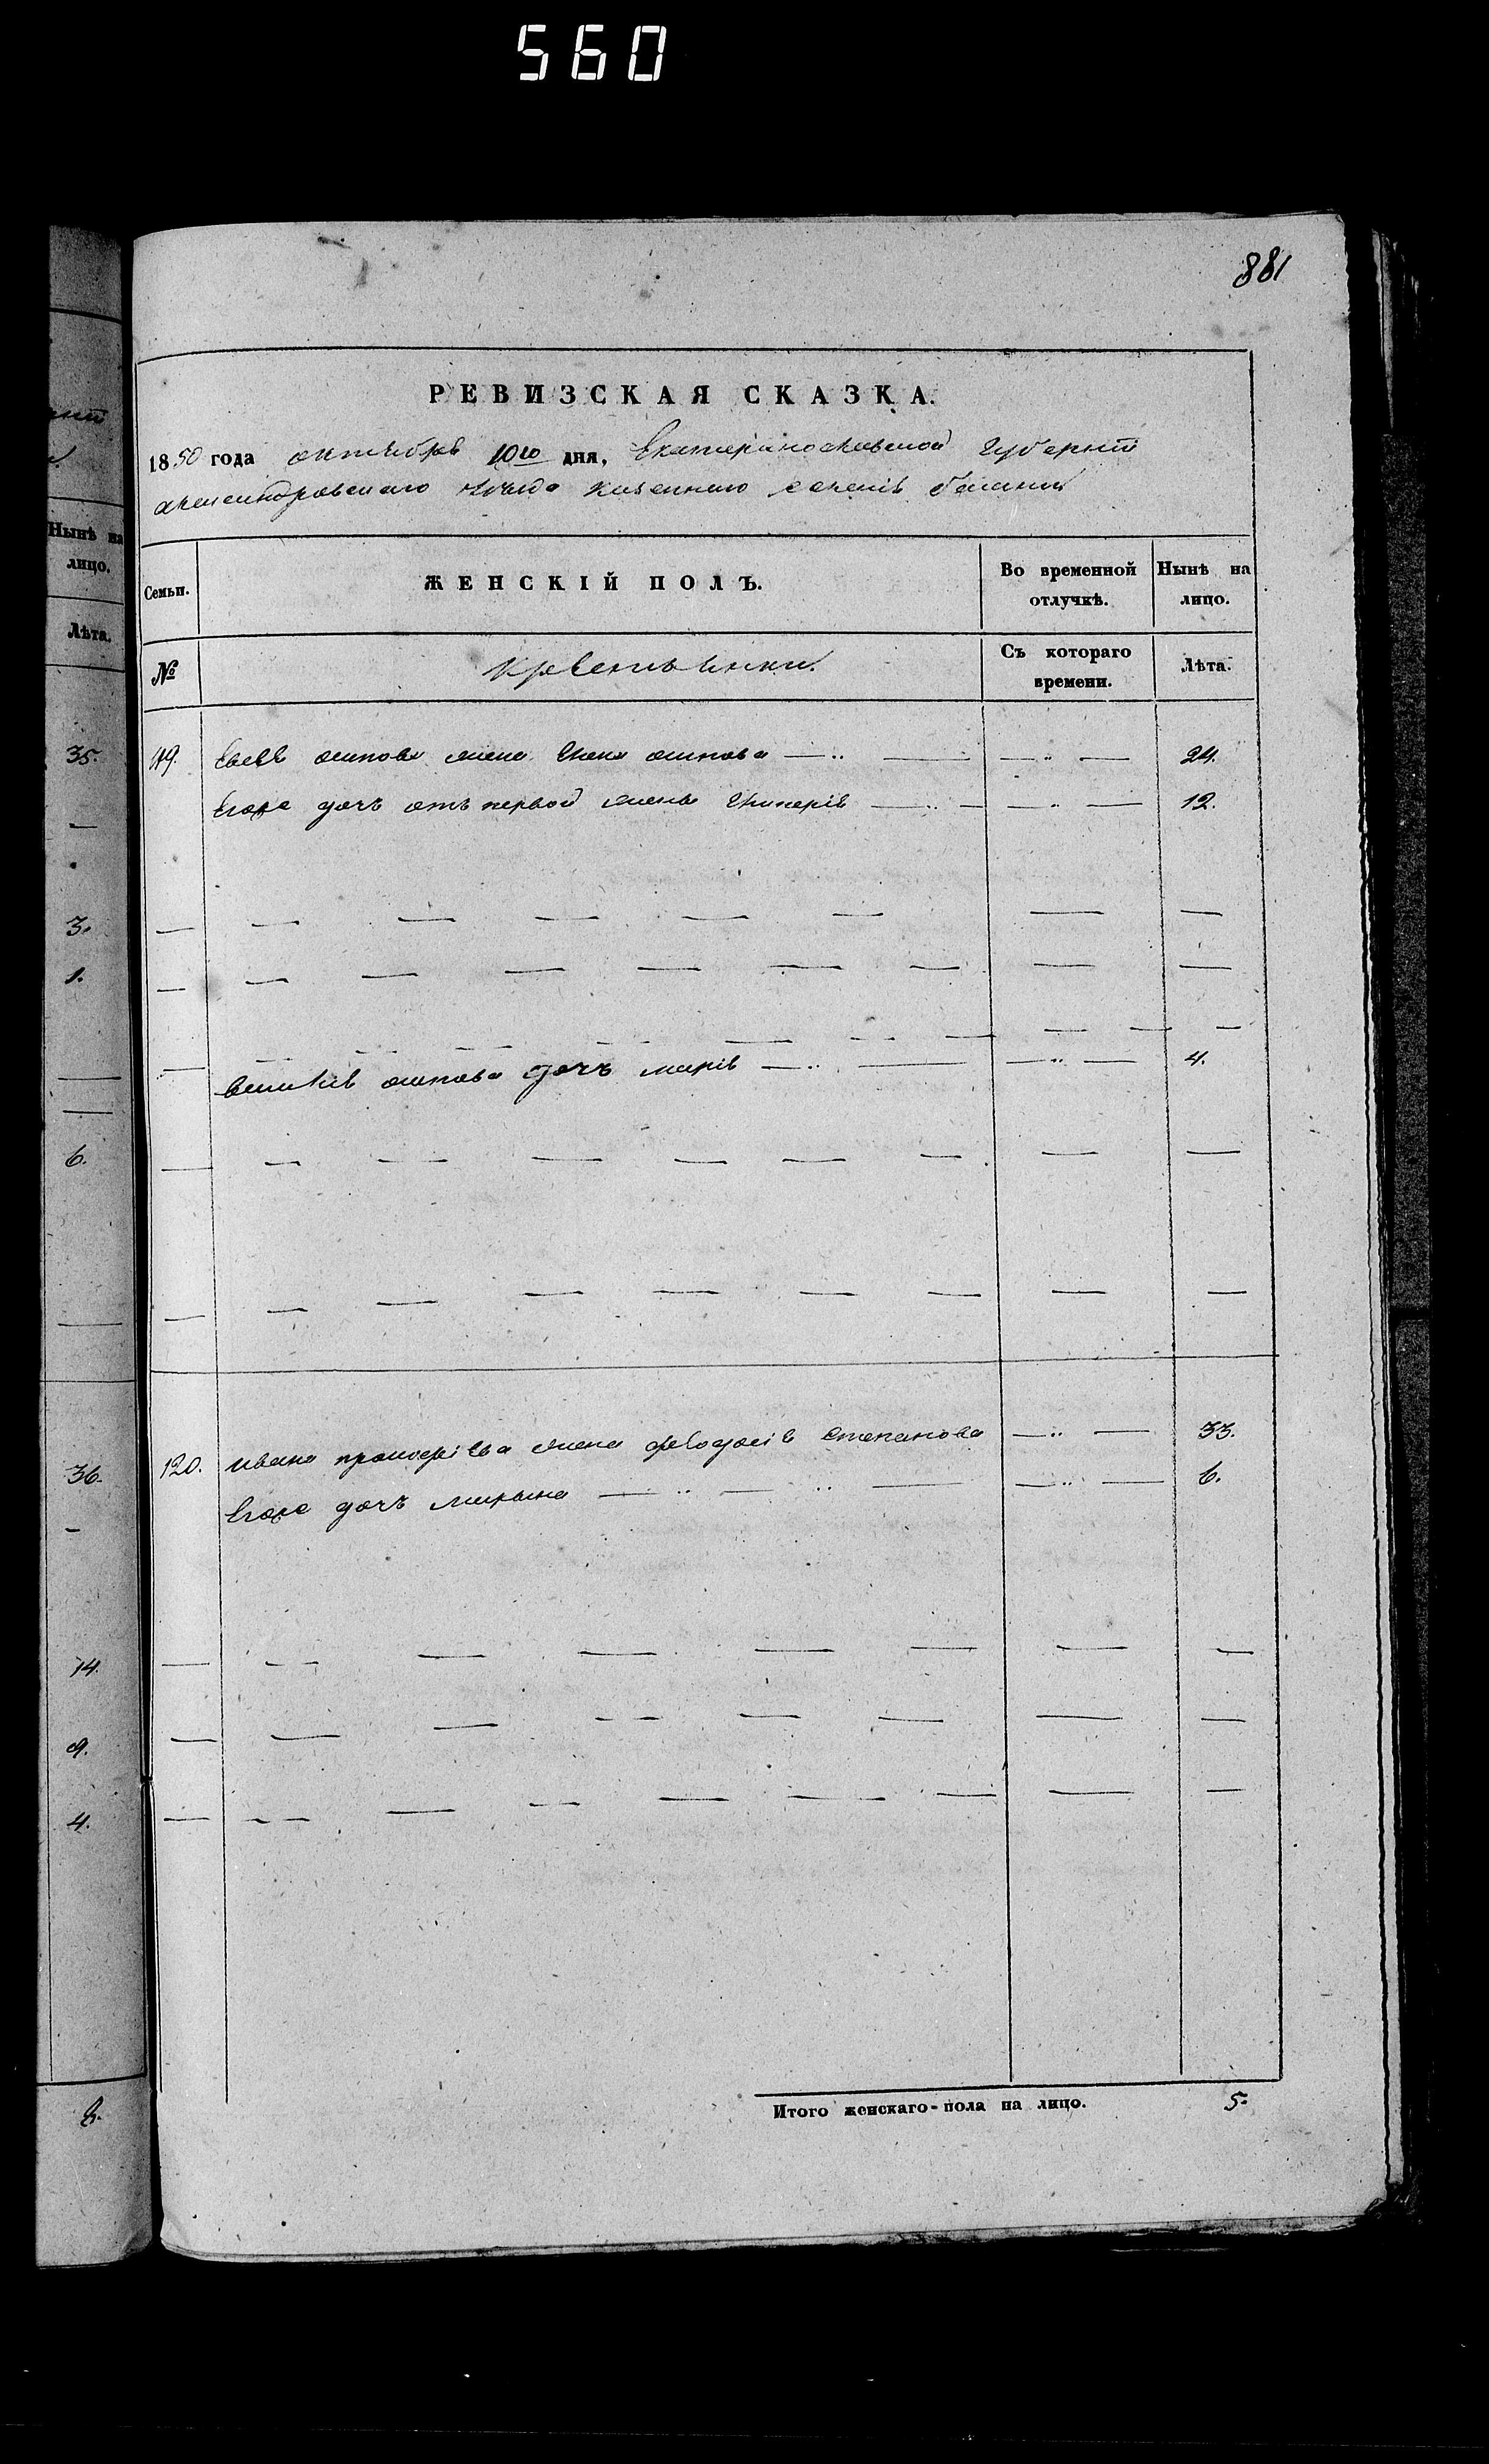 560
881
РЕВИЗСКАЯ СКАЗКА.
1850 года октября 10го дня, Екатеринославской Губерніи
александровскаго уѣзда казеннаго селенія
Семьи.
ЖЕНСКІЙ ПОЛЪ.
Во временной отлучкѣ.
Нынѣ на лицо.
№
Крестьянки.
Съ котораго времени.
Лѣта.
119. осипова жена осипова — 24.
Егоро дочь отъ первой жены — 12.
осипова дочь марія — 4.
120. ивана жена феодосія степанова — 33.
Егоро дочь марьяна — 6.
Итого женскаго-пола на лицо. 5.
Нынѣ на
лицо.
Лѣта.
35.
3.
1.
6.
36.
14.
9.
4.